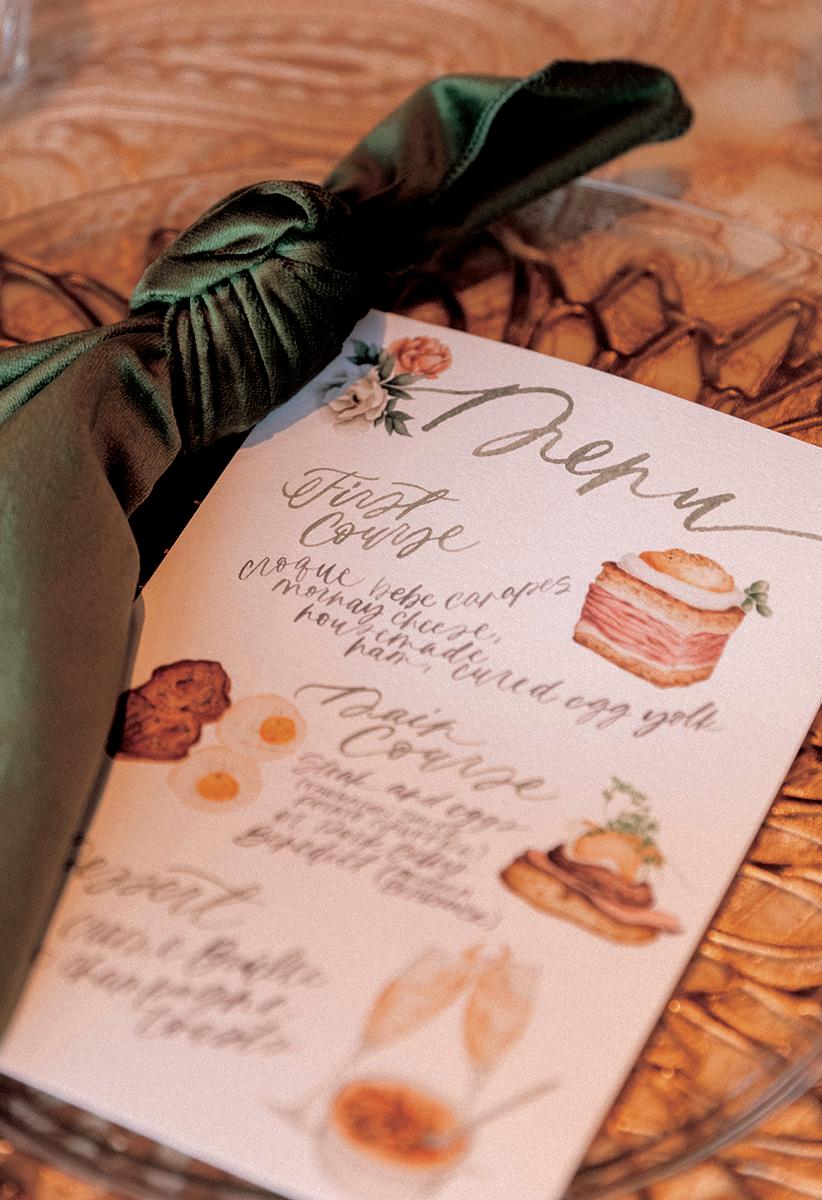 Menu
First
Course
croque bebe canapes
mornay cheese,
housemade
ham, cured egg yolk
Main
Course
steak and eggs
or
Benedict
Dessert
Brulee
champagne
toast